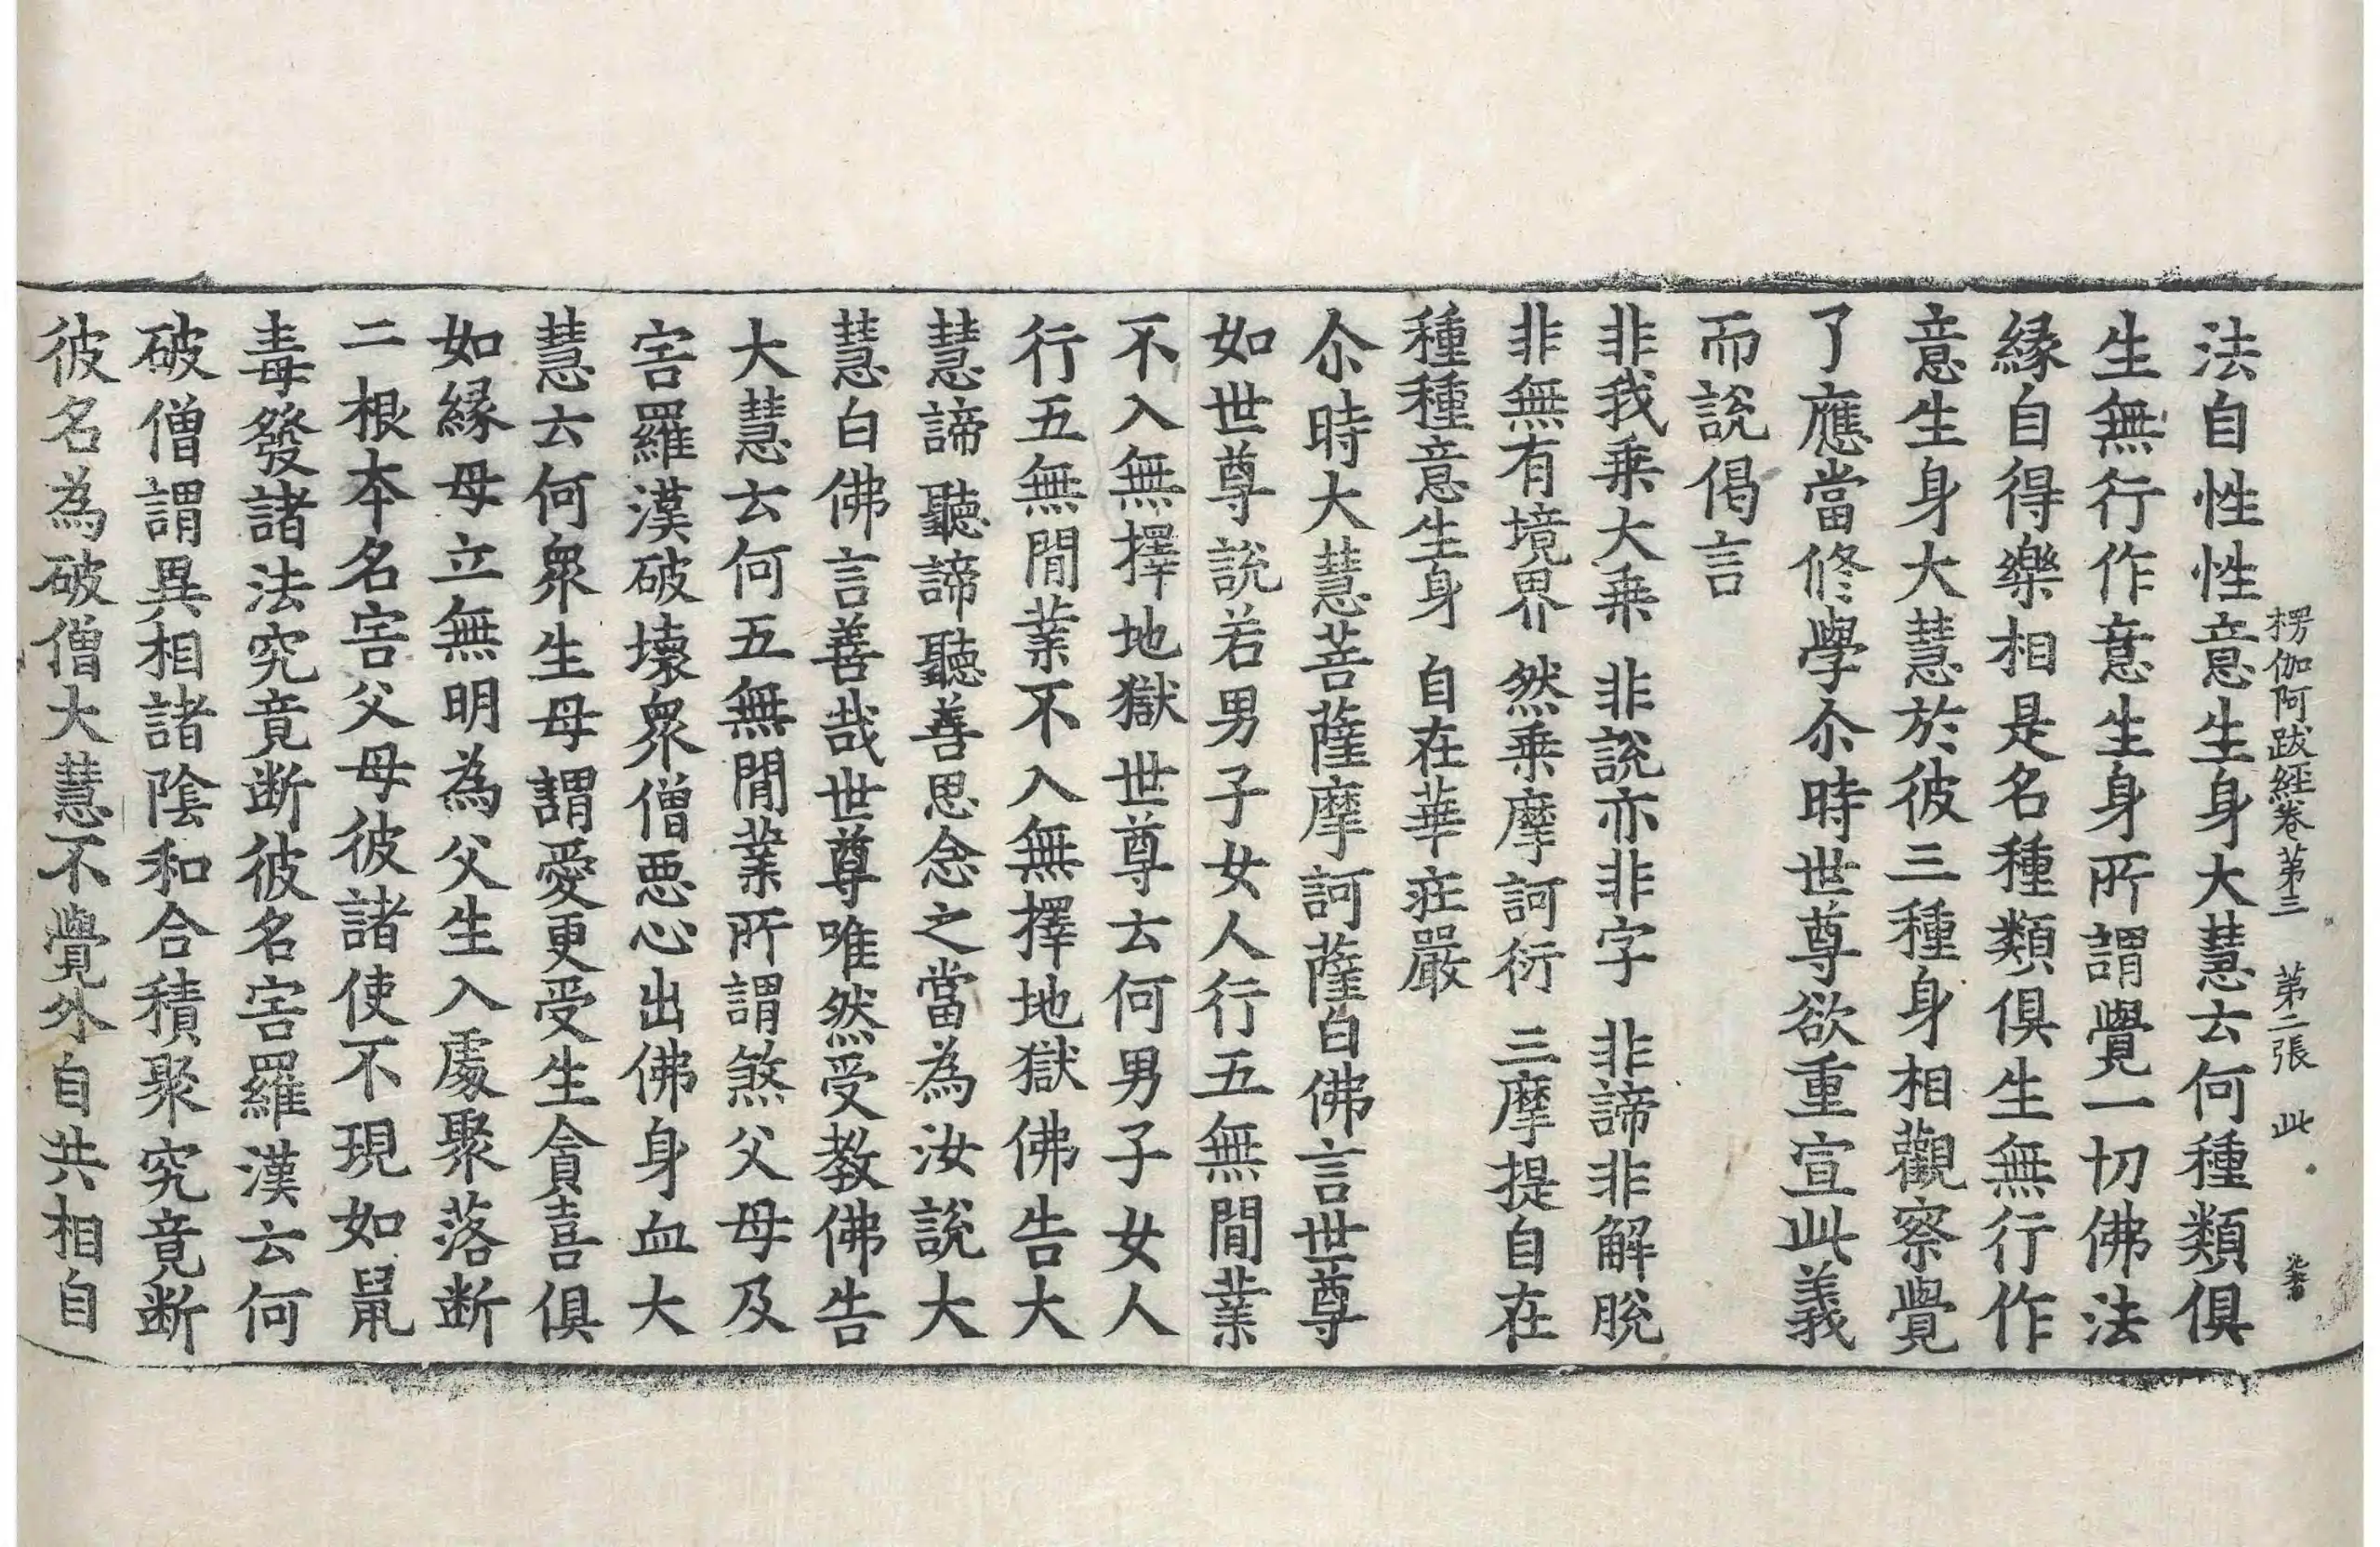 楞伽阿跋經卷第三　第二張　此
法自性性意生身大慧云何種類俱
生無行作意生身所謂覺一切佛法
緣自得樂相是名種類俱生無行作
意生身大慧於彼三種身相觀察覺
了應當修學尒時世尊欲重宣此義
而說偈言
非我乗大乗　非說亦非字　非諦非解脫
非無有境界　然乗摩訶衍　三摩提自在
種種意生身　自在華莊嚴
尒時大慧菩薩摩訶薩白佛言世尊
如世尊說若男子女人行五無閒業
不入無擇地獄世尊云何男子女人
行五無閒業不入無擇地獄佛告大
慧諦聽諦聽善思念之當為汝說大
慧白佛言善哉世尊唯然受教佛告
大慧云何五無閒業所謂煞父母及
害羅漢破壞衆僧惡心出佛身血大
慧云何衆生母謂愛更受生貪喜俱
如緣母立無明為父生入處聚落斷
二根本名害父母彼諸使不現如鼠
毒發諸法究竟斷彼名害羅漢云何
破僧謂異相諸陰和合積聚究竟斷
彼名為破僧大慧不覺外自共相自